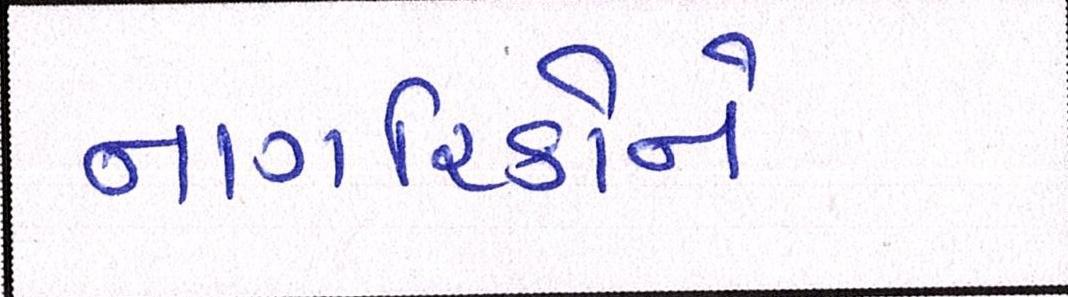 નાગરિકોને